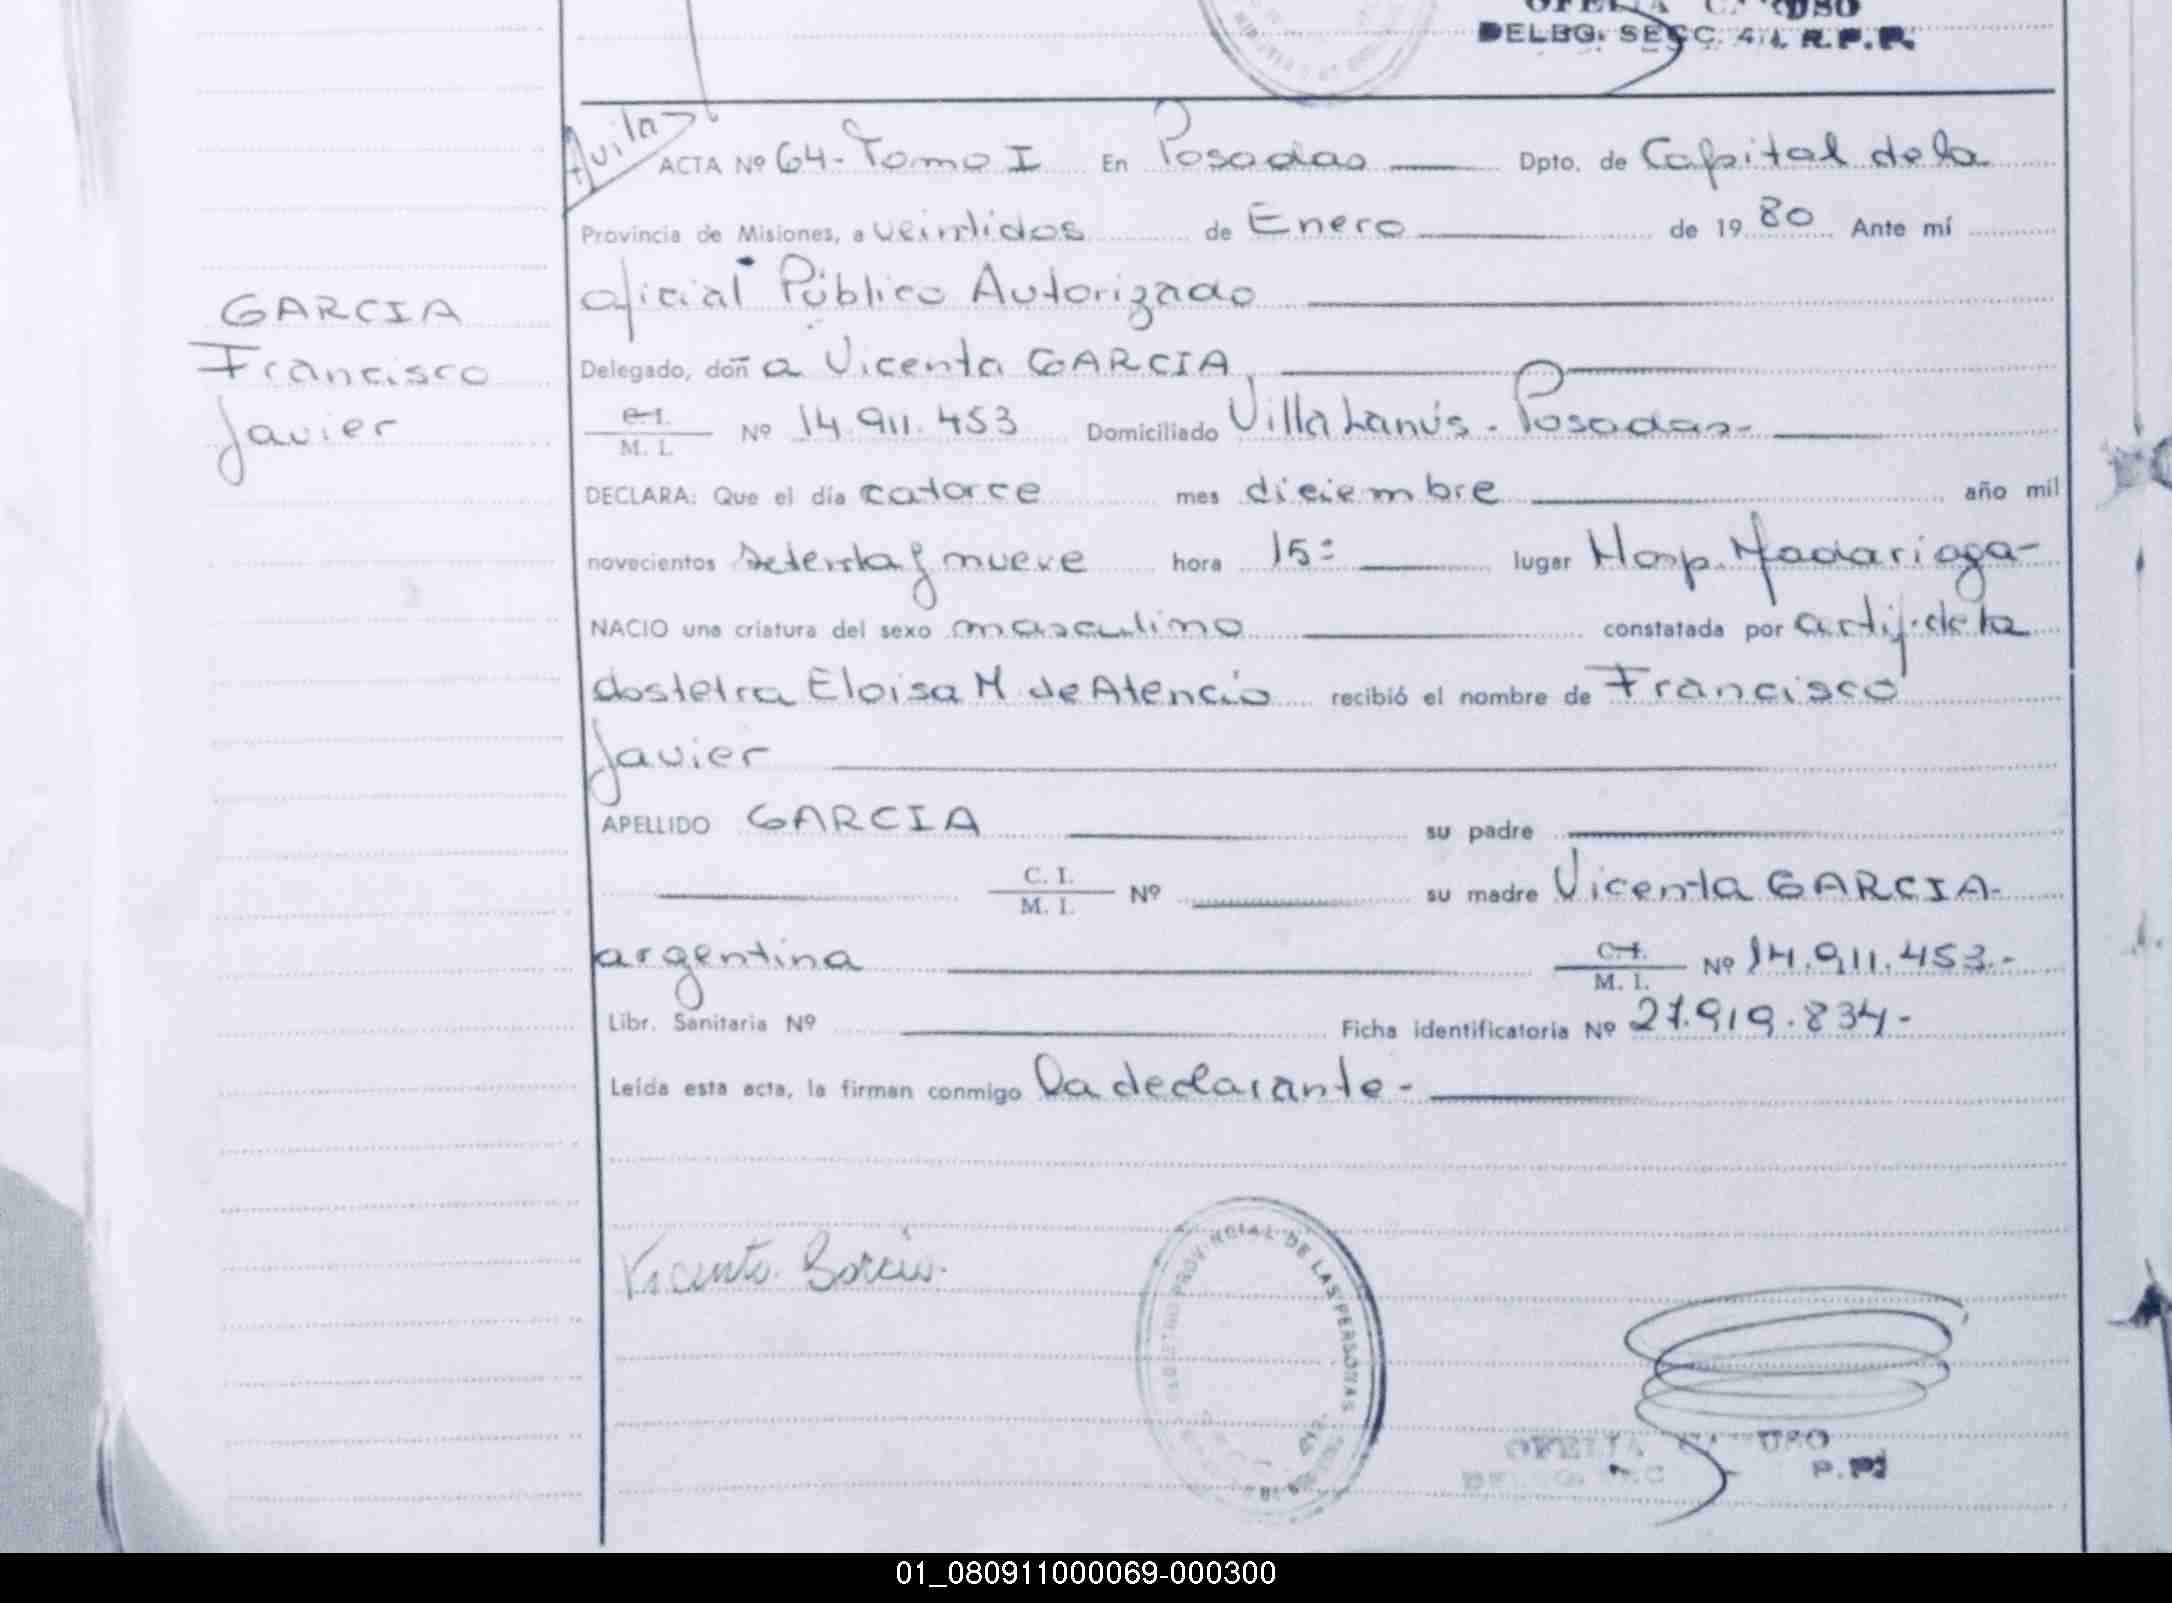 DELEG. SECC. 4ta R.P.P.
Avila
ACTA Nº 64 - Tomo I En Posadas Dpto. de Capital de la
Provincia de Misiones, a veintidos de Enero de 1980 Ante mí
oficial Público Autorizado
GARCIA
Francisco
Javier
Delegado, doña Vicenta GARCIA
C.I.
M. I. Nº 14.911.453 Domiciliado Villa Lanús - Posadas -
DECLARA: Que el día catorce mes diciembre año mil
novecientos setenta y nueve hora 15: lugar Hosp. Madariaga -
NACIO una criatura del sexo masculino constatada por certif. de la
obstetra Eloisa M de Atencio recibió el nombre de Francisco
Javier
APELLIDO GARCIA su padre
C. I.
M. I. Nº su madre Vicenta GARCIA -
argentina C.I.
M. I. Nº 14.911.453.-
Libr. Sanitaria Nº Ficha identificatoria Nº 27.919.834-
Leída esta acta, la firman conmigo la declarante -
Vicenta Garcia
PROVINCIAL DE LAS PERSONAS
01_080911000069-000300